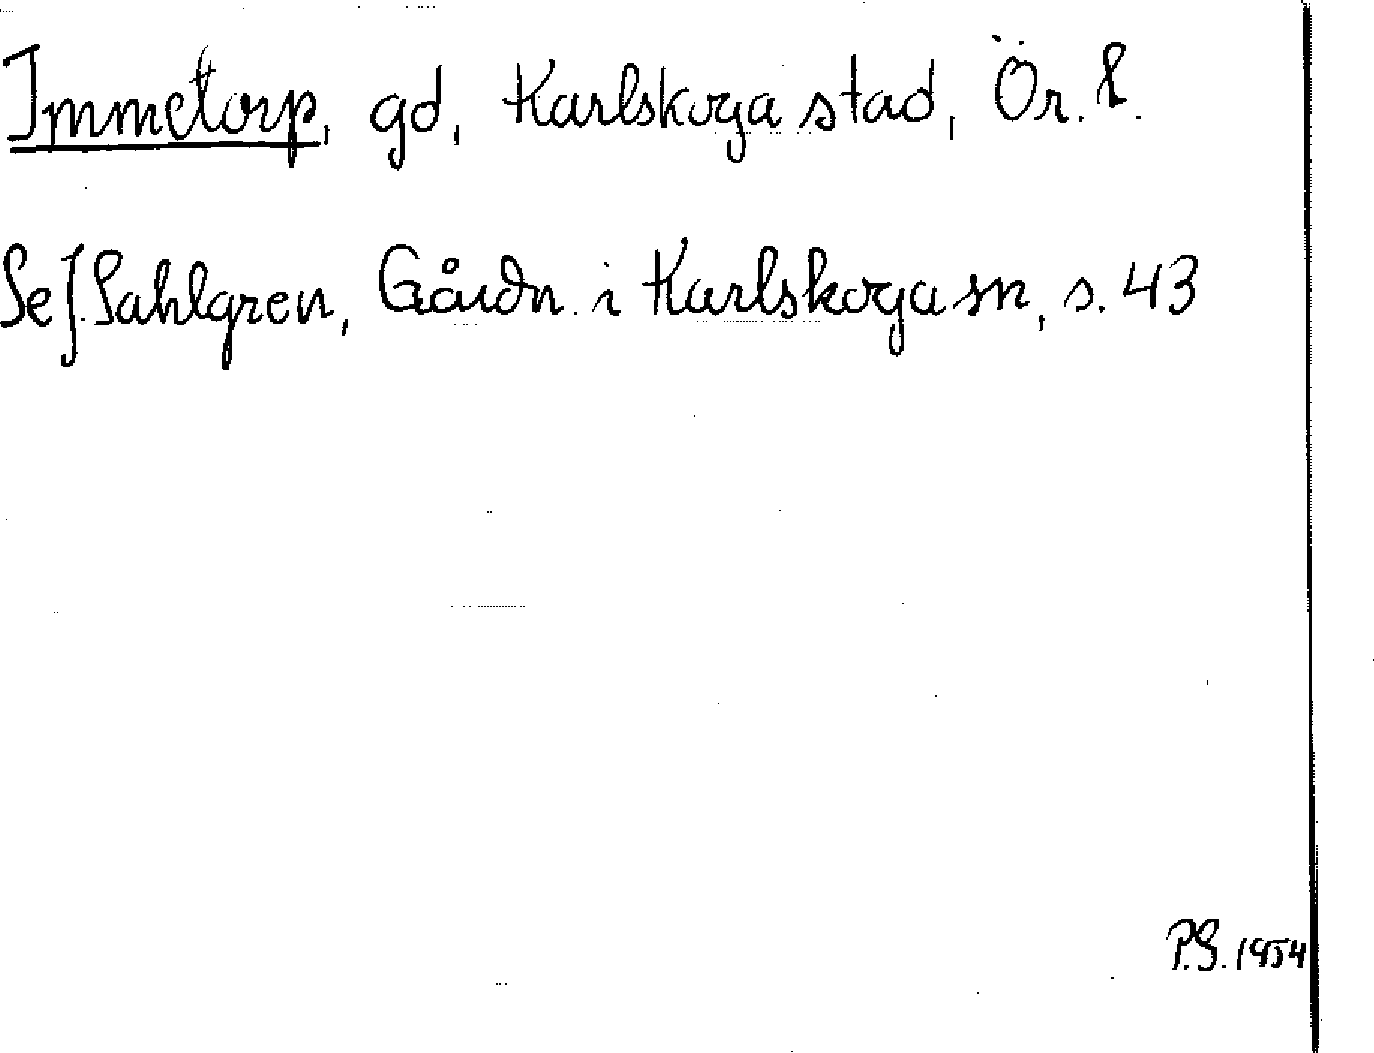 Immetorp, gd, Karlskoga stad, Ör. l.
Se J. Sahlgren, Gårdn. i Karlskoga sn, s. 43
P.S. 1954